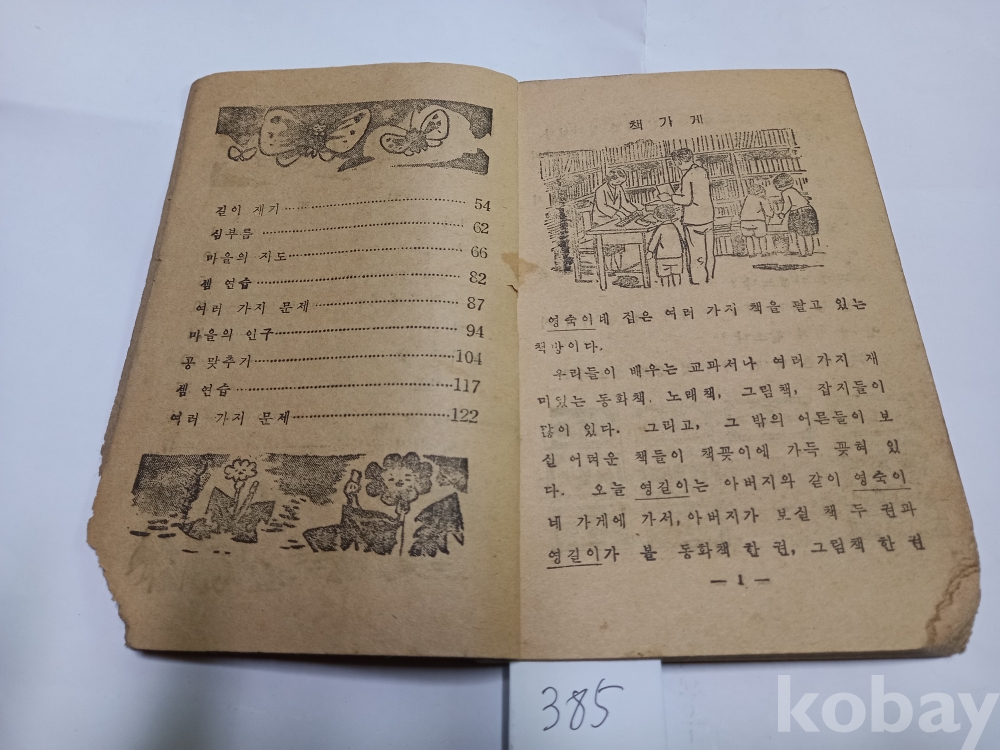 길이 재기 54
심부름 62
마을의 지도 66
셈 연습 82
여러 가지 문제 87
마을의 인구 94
공 맞추기 104
셈 연습 117
여러 가지 문제 122
책 가 게
영숙이네 집은 여러 가지 책을 팔고 있는
책방이다.
우리들이 배우는 교과서나 여러 가지 재
미있는 동화책, 노래책, 그림책, 잡지들이
많이 있다. 그리고, 그 밖의 어른들이 보
실 어려운 책들이 책꽂이에 가득 꽂혀 있
다. 오늘 영길이는 아버지와 같이 영숙이
네 가게에 가서, 아버지가 보실 책 두 권과
영길이가 볼 동화책 한 권, 그림책 한 권
— 1 —
385
kobay